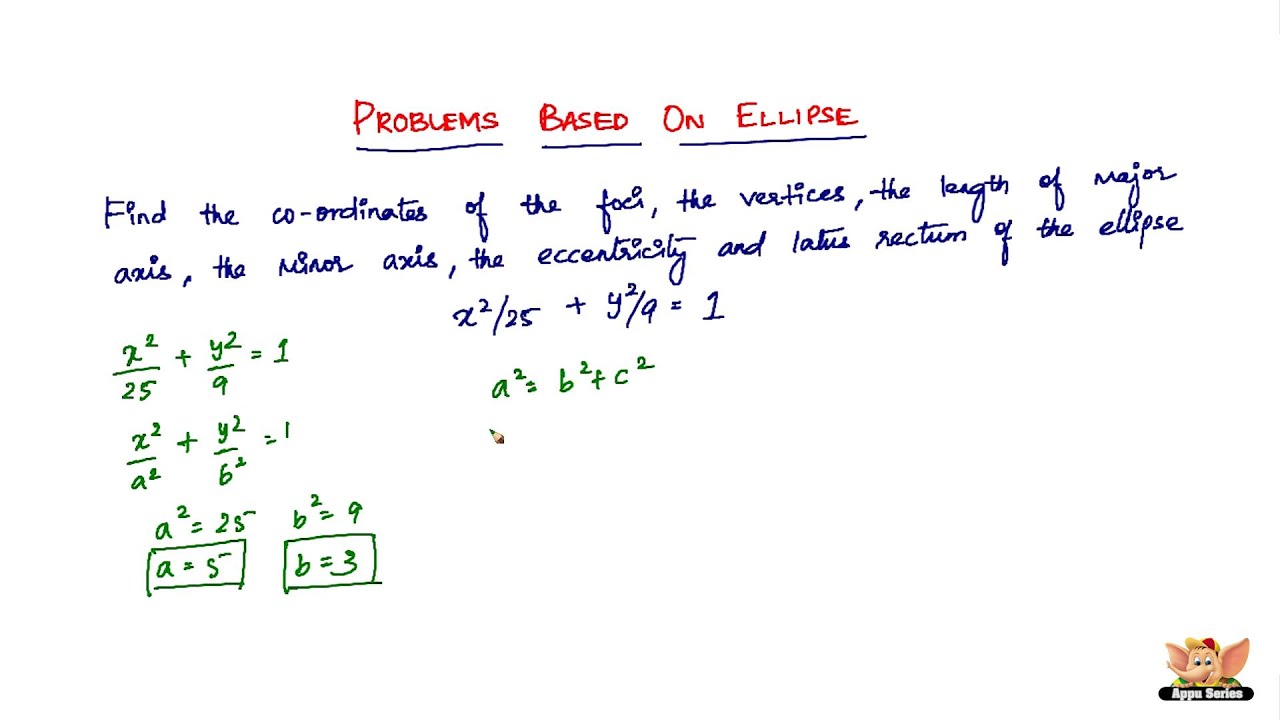 PROBLEMS BASED ON ELLIPSE
Find the co-ordinates of the foci, the vertices, the length of major
axis, the minor axis, the eccentricity and latus rectum of the ellipse
x²/25 + y²/9 = 1
x²/25 + y²/9 = 1
a² = b² + c²
x²/a² + y²/b² = 1
a² = 25 b² = 9
a = 5 b = 3
Appu Series